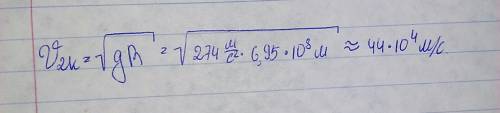 υ₂ₖ = √gR = √274 м/с² · 6,95 · 10⁸ м ≈ 44 · 10⁴ м/с.